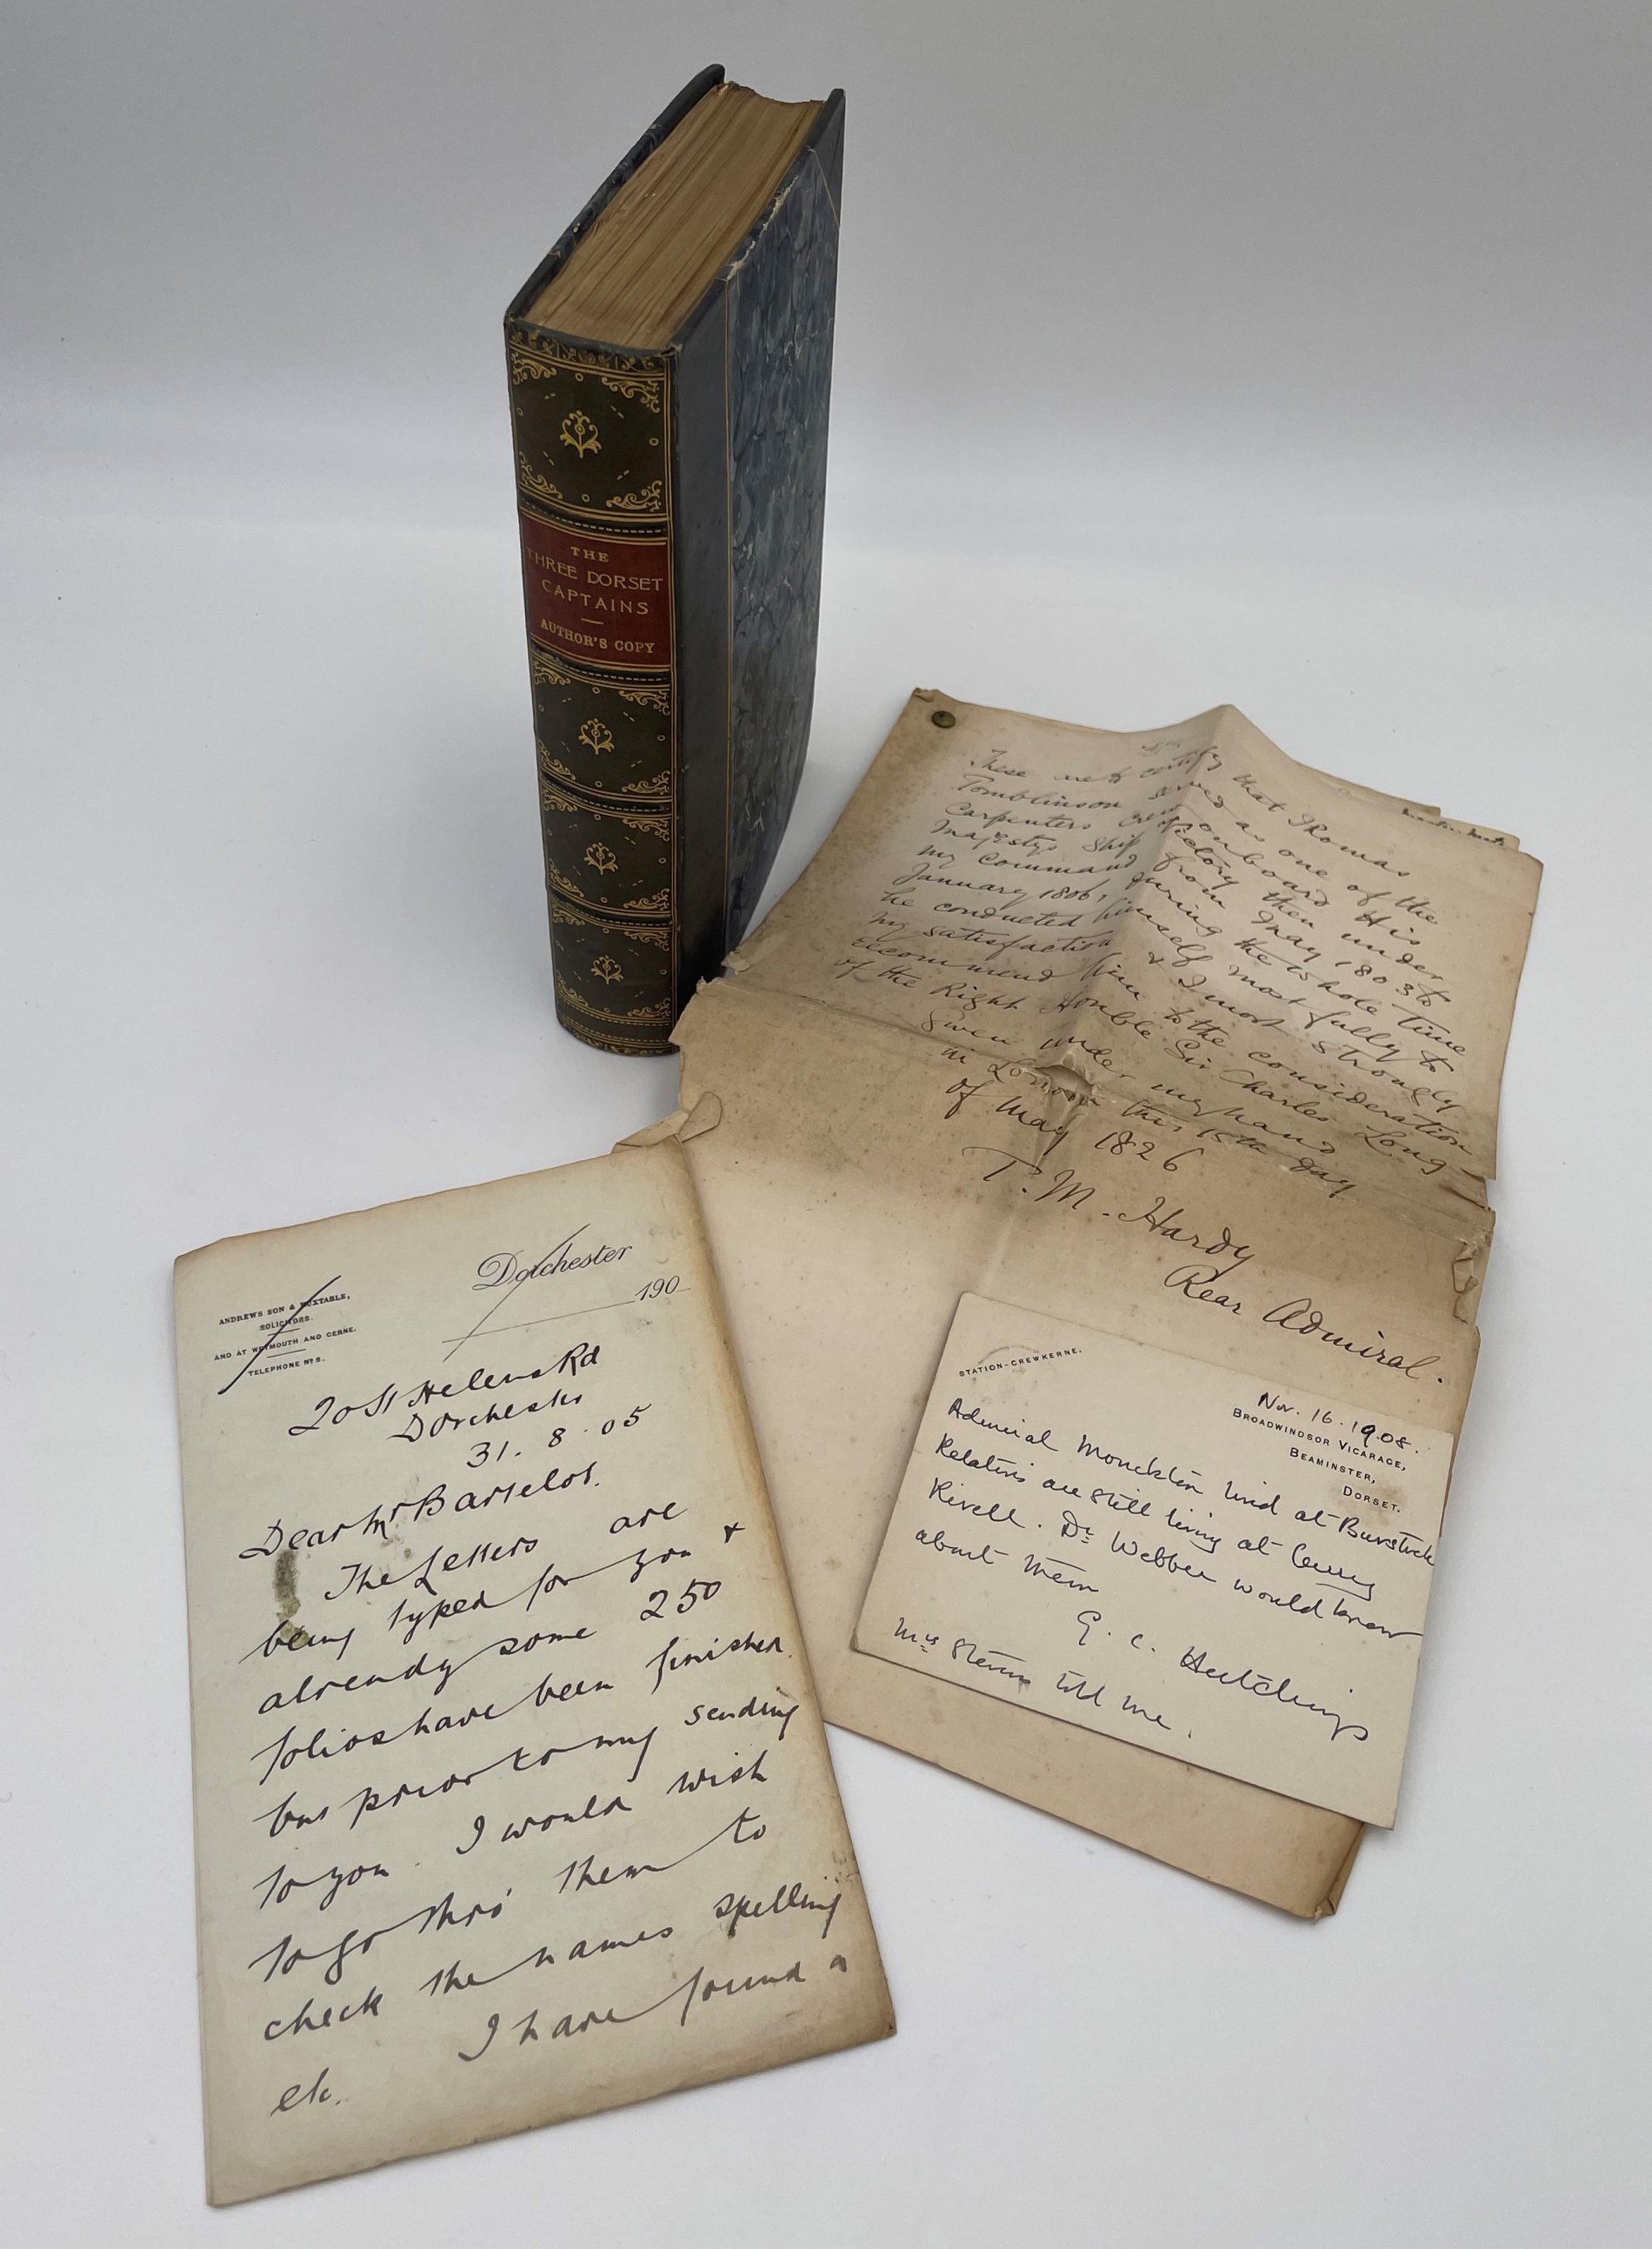 THE
THREE DORSET
CAPTAINS
AUTHOR'S COPY
These are to certify that Thomas
Tomblinson served as one of the
Carpenters Crew onboard His
Majestys Ship Victory then under
my command from May 1803 to
January 1806, during the whole time
he conducted himself most fully to
my satisfaction & I most strongly
recommend him to the consideration
of the Right Honble Sir Charles Long
Given under my hand
in London this 15th day
of May 1826
T. M. Hardy
Rear Admiral.
Dorchester
190
ANDREWS SON & HUXTABLE,
SOLICITORS.
AND AT WEYMOUTH AND CERNE.
TELEPHONE Nº 9.
20 St Helens Rd
Dorchester
31. 8. 05
Dear Mr Bartelot.
The Letters are
being typed for you +
already some 250
folios have been finished
but prior to my sending
to you. I would wish
to go thro' them to
check the names spelling
etc. I have found a
STATION-CREWKERNE.
Nov. 16. 1908.
BROADWINDSOR VICARAGE,
BEAMINSTER,
DORSET.
Admiral Monckton lived at
Relatives are still living at Curry
Rivell. Dr Webber would know
about them
G. C. Hutchings
Mrs told me.